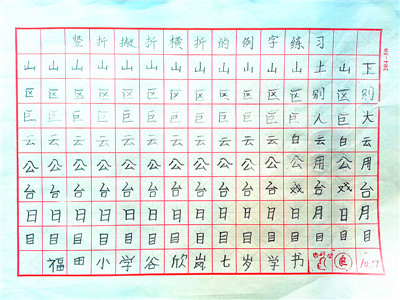 竖折撇折横折的例字练习
山山山山山山山山山山山土山下
区区区区区区区区区区区别区别
巨巨巨巨巨巨巨巨巨巨巨人巨大
云云云云云云云云云云云白云
公公公公公公公公公公公用公用
台台台台台台台台台台台戏台戏台
日日日日日日日日日日日月日月
目目目目目目目目目目目目目目
福田小学谷欣岚七岁学书